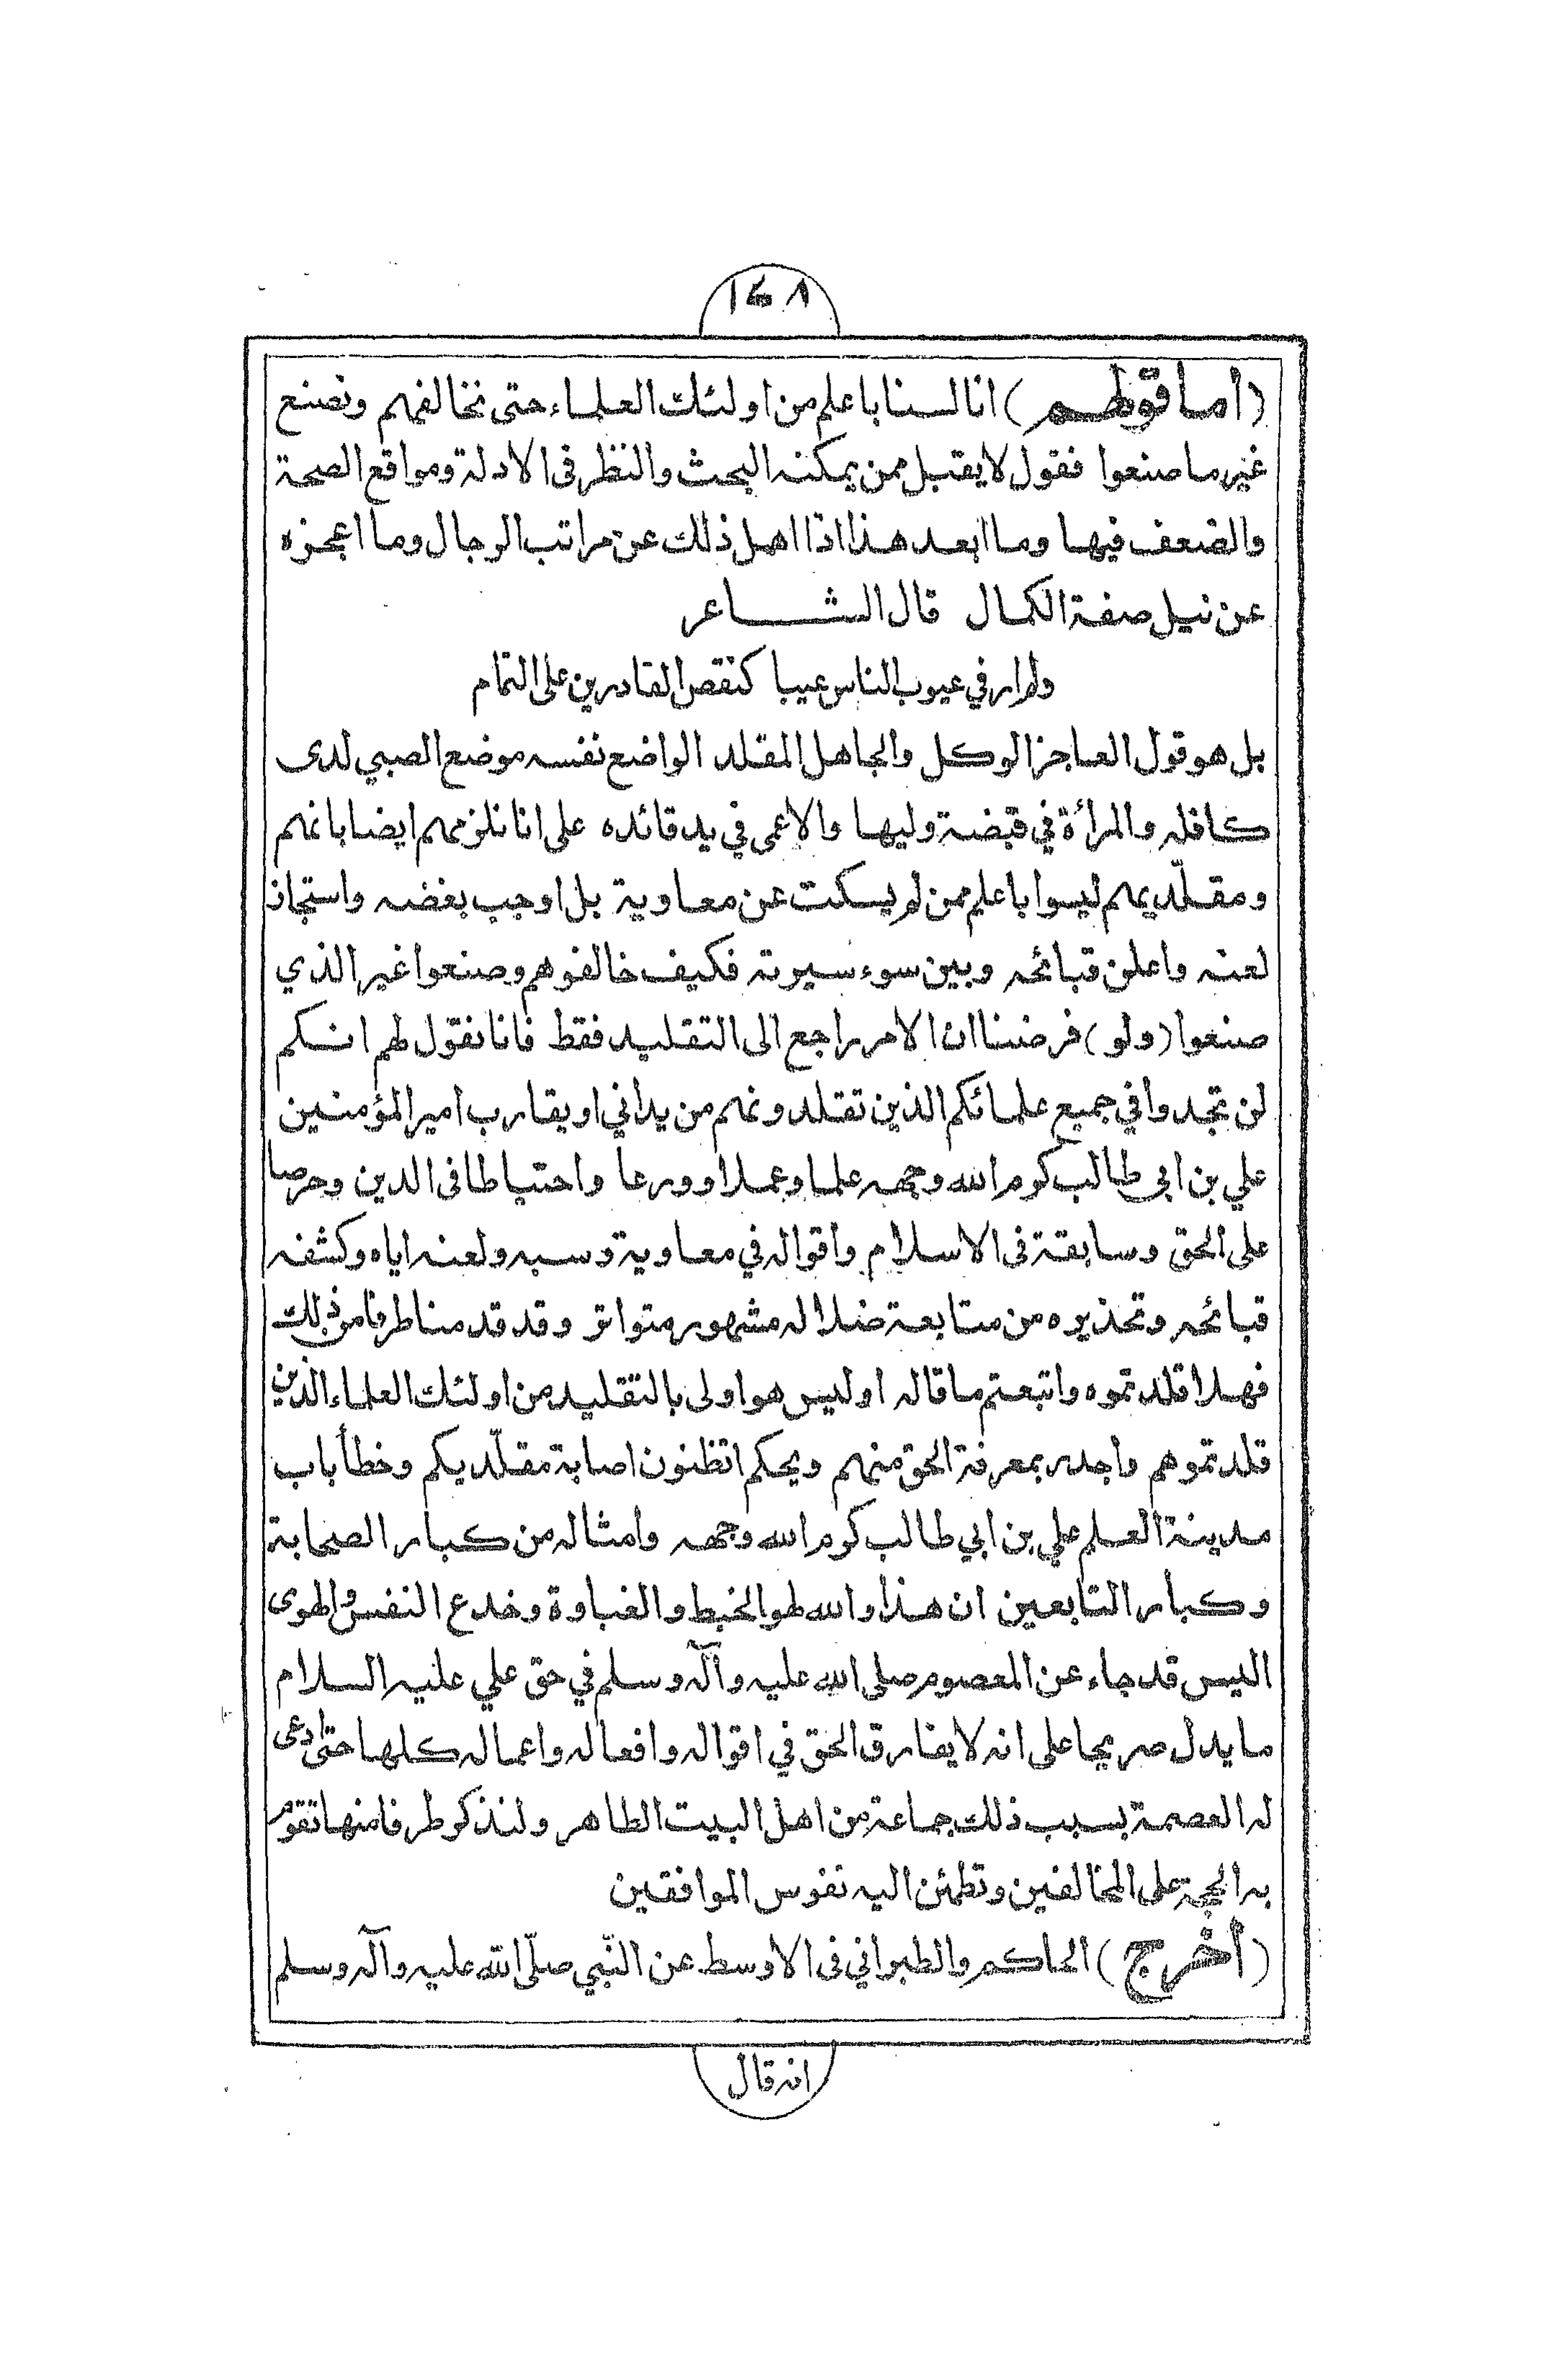 ١٤٨
(أما قولهم) انا لسنا باعلم من اولئك العلماء حتى نخالفهم ونصنع
غير ما صنعوا فقول لا يقبل ممن يمكنه البحث والنظر فى الادلة ومواقع الصحة
والضعف فيها وما ابعد هذا اذا اهل ذلك عن مراتب الرجال وما اعجزه
عن نيل صفة الكمال قال الشاعر
ولم ار في عيوب الناس عيبا كنقص القادرين على التمام
بل هو قول العاجز الوكل والجاهل المقلد الواضع نفسه موضع الصبي لدى
كافله والمرأة في قبضة وليها والاعمى في يد قائده على انا نلزمهم ايضا بانهم
ومقلّديهم ليسوا باعلم ممن لم يسكت عن معاوية بل اوجب بغضه واستجاز
لعنه واعلن قبائحه وبين سوء سيرته فكيف خالفوهم وصنعوا غير الذي
صنعوا (ولو) فرضنا ان الامر راجع الى التقليد فقط فانا نقول لهم انكم
لن تجدوا في جميع علمائكم الذين تقلدونهم من يداني او يقارب امير المؤمنين
علي بن ابي طالب كرم الله وجهه علما وعملا وورعا واحتياطا فى الدين وحرصا
على الحق وسابقة فى الاسلام واقواله في معاوية وسبه ولعنه اياه وكشفه
قبائحه وتحذيره من متابعة ضلاله مشهور متواتر وقد قدمنا طرفا من ذلك
فهلا قلدتموه واتبعتم ما قاله اوليس هو اولى بالتقليد من اولئك العلماء الذين
قلدتموهم واجدر بمعرفة الحق منهم ويحكم اتظنون اصابة مقلّديكم وخطأ باب
مدينة العلم علي بن ابي طالب كرم الله وجهه وامثاله من كبار الصحابة
وكبار التابعين ان هذا والله لهو الخبط والغباوة وخدع النفس والهوى
اليس قد جاء عن المعصوم صلى الله عليه وآله وسلم في حق علي عليه السلام
ما يدل صريحا على انه لا يفارق الحق في اقواله وافعاله واعماله كلها حتى ادعى
له العصمة بسبب ذلك جماعة من اهل البيت الطاهر ولنذكر طرفا منها تقوم
به الحجة على المخالفين وتطمئن اليه نفوس الموافقين
(أخرج) الحاكم والطبراني فى الاوسط عن النّبي صلّى الله عليه وآله وسلم
انه قال